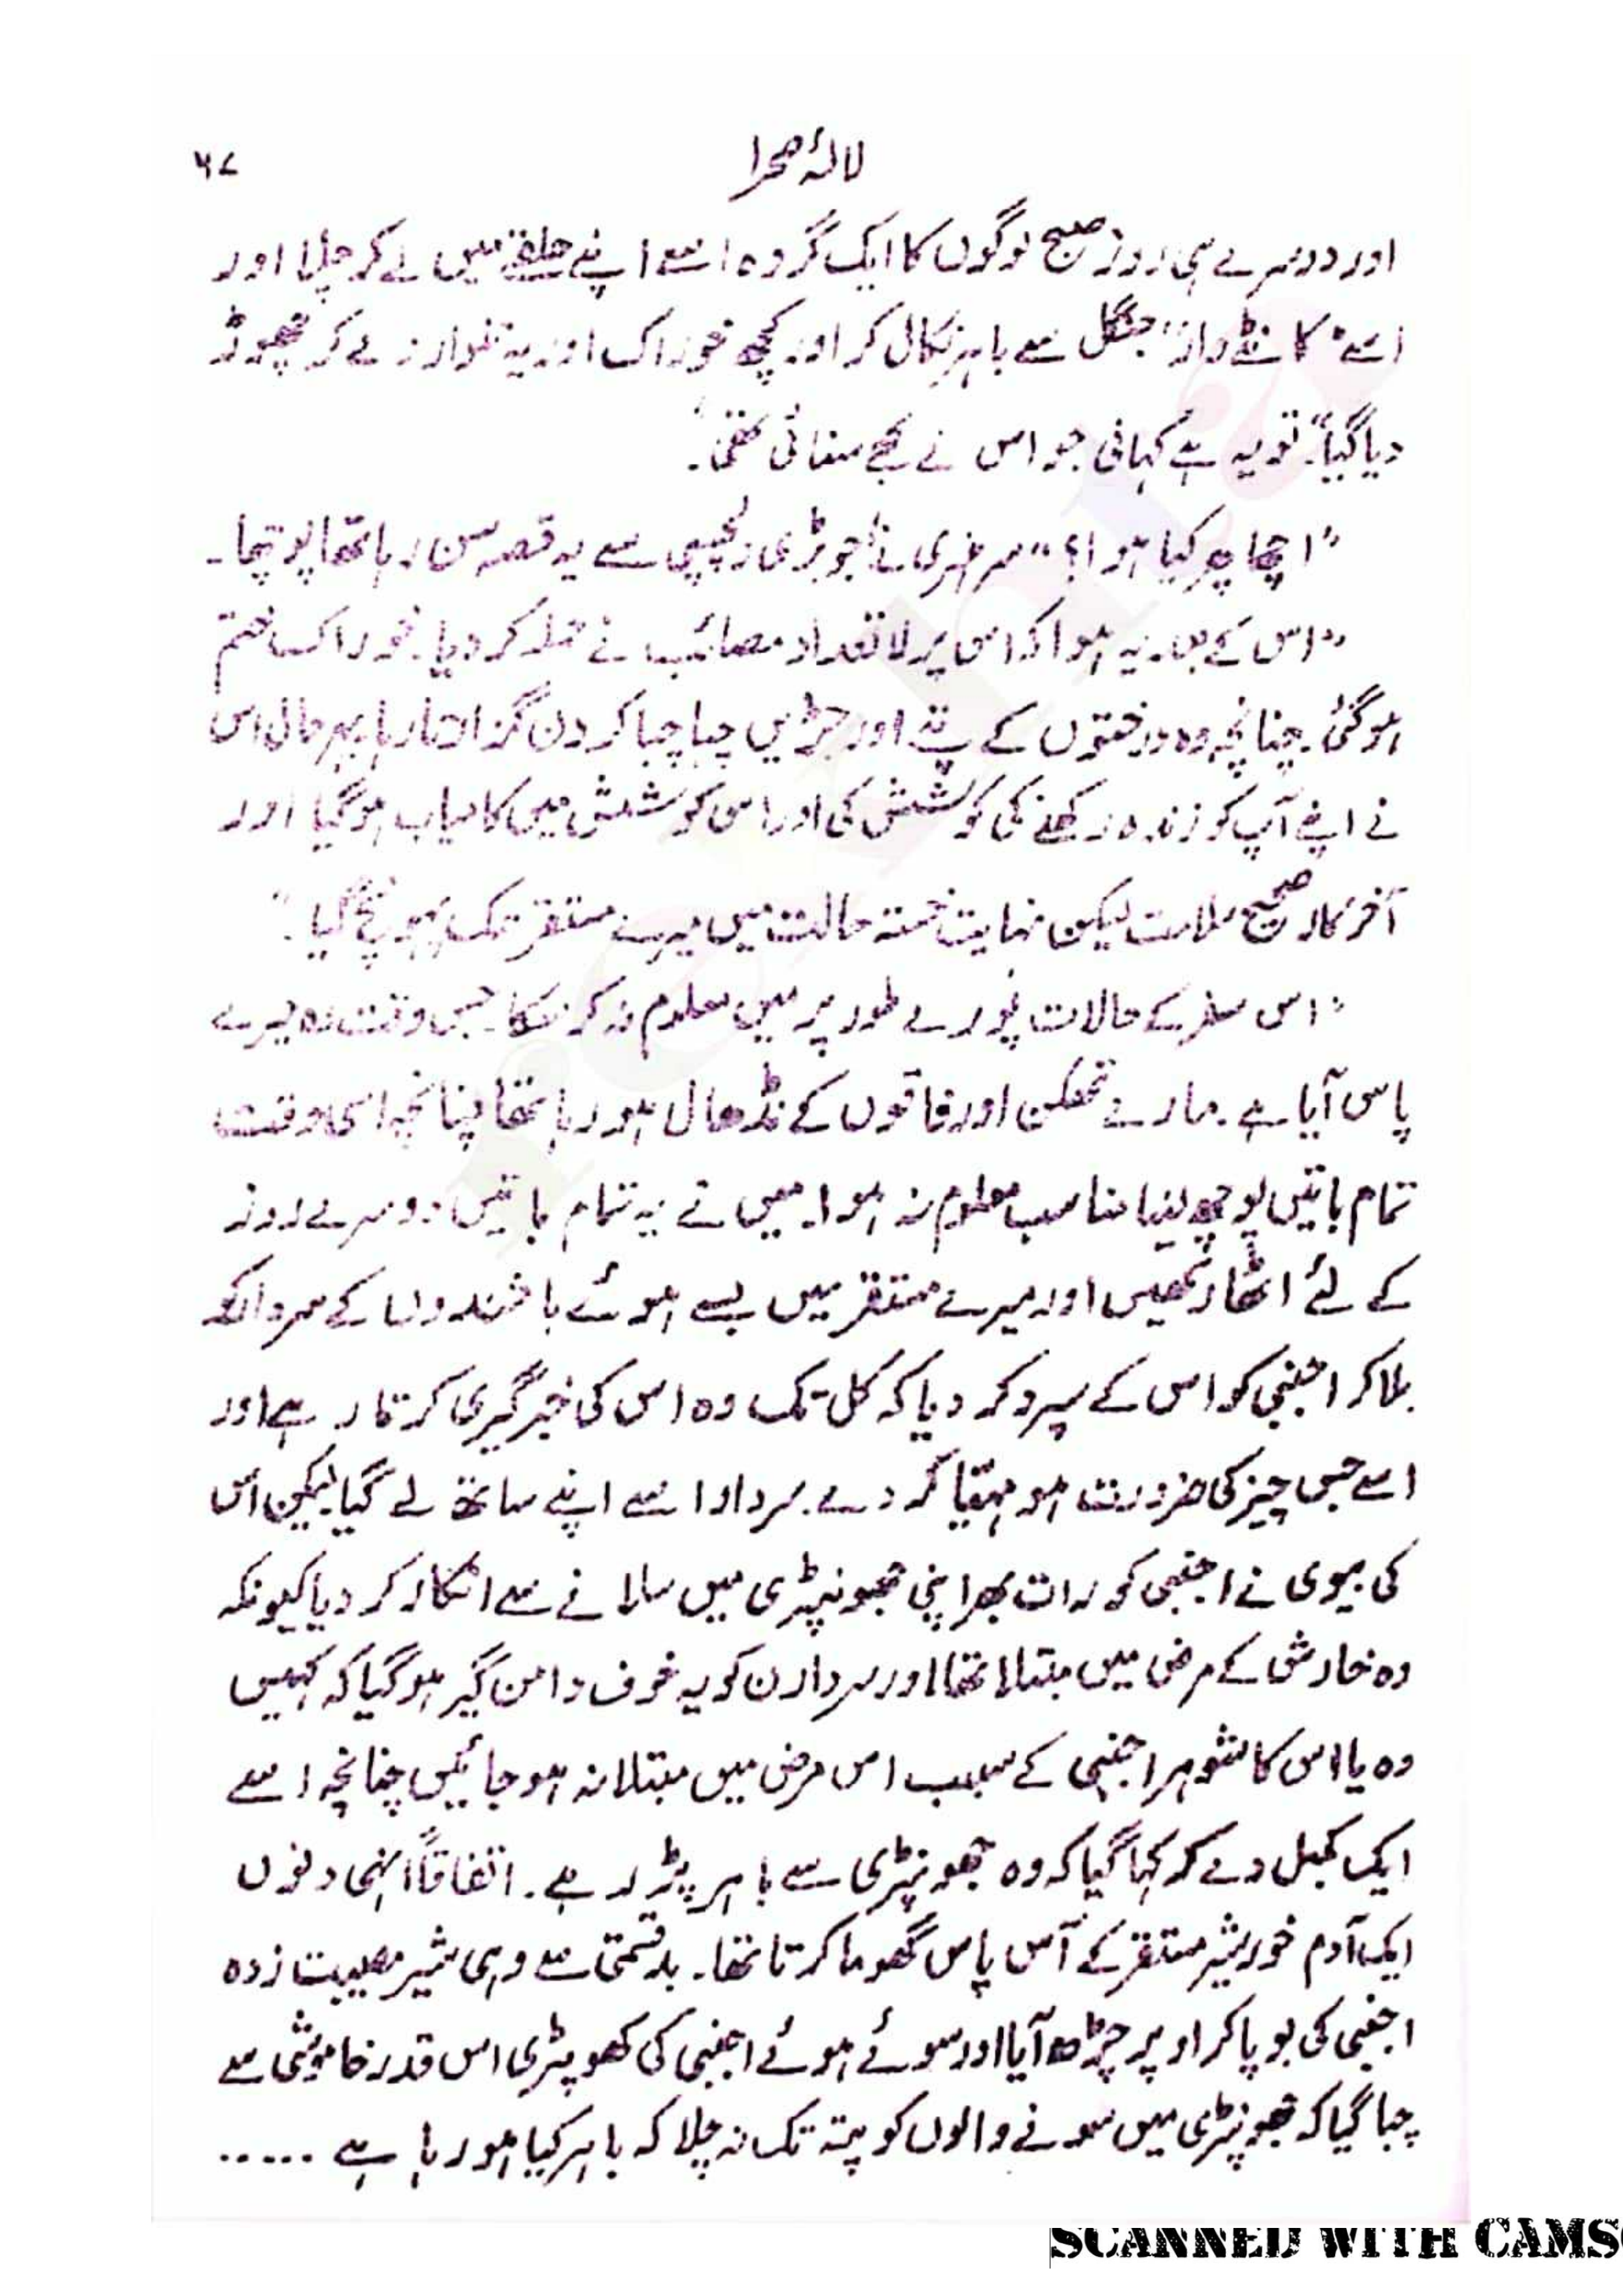 لالۂ صحرا
۶۷
اور دوسرے ہی روز صبح لوگوں کا ایک گروہ اسے اپنے حلقے میں لے کر چلا اور
اسے "کانٹے دار" جنگل سے باہر نکال کر اور کچھ خوراک اور یہ تلوار دے کر چھوڑ
دیا گیا"۔ تو یہ ہے کہانی جو اس نے مجھے سنائی تھی۔
"اچھا پھر کیا ہوا؟" سر ہنری نے جو بڑی دلچسپی سے یہ قصہ سن رہا تھا پوچھا۔
"اس کے بعد یہ ہوا کہ اس پر لاتعداد مصائب نے حملہ کر دیا۔ خوراک ختم
ہو گئی۔ چنانچہ وہ درختوں کے پتے اور جڑیں چبا چبا کر دن گزارتا رہا بہرحال اس
نے اپنے آپ کو زندہ رکھنے کی کوشش کی اور اس کوشش میں کامیاب ہو گیا اور
آخر کار صحیح سلامت لیکن نہایت خستہ حالت میں میرے مستقر تک پہونچ گیا۔"
"اس سفر کے حالات پورے طور پر میں معلوم نہ کر سکا۔ جس وقت وہ میرے
پاس آیا ہے۔ مارے تھکن اور فاقوں کے نڈھال ہو رہا تھا چنانچہ اسی وقت
تمام باتیں پوچھ لینا مناسب معلوم نہ ہوا۔ میں نے یہ تمام باتیں دوسرے روز
کے لئے اٹھا رکھیں اور میرے مستقر میں بسے ہوئے باشندوں کے سردار کو
بلا کر اجنبی کو اس کے سپرد کر دیا کہ کل تک وہ اس کی خبر گیری کرتا رہے اور
اسے جس چیز کی ضرورت ہو مہیا کر دے۔ سردار اسے اپنے ساتھ لے گیا لیکن اس
کی بیوی نے اجنبی کو رات بھر اپنی جھونپڑی میں سلانے سے انکار کر دیا کیونکہ
وہ خارش کے مرض میں مبتلا تھا اور سردارن کو یہ خوف دامن گیر ہو گیا کہ کہیں
وہ یا اس کا شوہر اجنبی کے سبب اس مرض میں مبتلا نہ ہو جائیں چنانچہ اسے
ایک کمبل دے کر کہا گیا کہ وہ جھونپڑی سے باہر پڑ رہے۔ اتفاقاً انہی دنوں
ایک آدم خور شیر مستقر کے آس پاس گھوما کرتا تھا۔ بدقسمتی سے وہی شیر مصیبت زدہ
اجنبی کی بو پا کر اوپر چڑھ آیا اور سوئے ہوئے اجنبی کی کھوپڑی اس قدر خاموشی سے
چبا گیا کہ جھونپڑی میں سونے والوں کو پتہ تک نہ چلا کہ باہر کیا ہو رہا ہے .....
SCANNED WITH CAMS